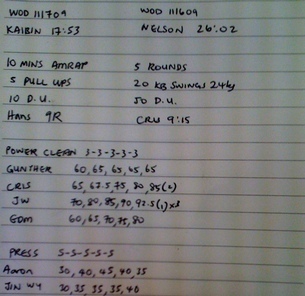 WOD 111709 WOD 111609
KAIBIN 17:53 NELSON 26:02
10 MINS AMRAP 5 ROUNDS
5 PULL UPS 20 KB SWINGS 24kg
10 D.U. 50 D.U.
Hans 9R CRIS 9:15
POWER CLEAN 3-3-3-3-3
GUNTHER 60, 65, 65, 65, 65
CRIS 65, 67.5, 75, 80, 85(2)
JW 70, 80, 85, 90, 92.5(1)x3
EDM 60, 65, 70, 75, 80
PRESS 5-5-5-5-5
Aaron 30, 40, 45, 40, 35
JIN WY 30, 35, 35, 35, 40